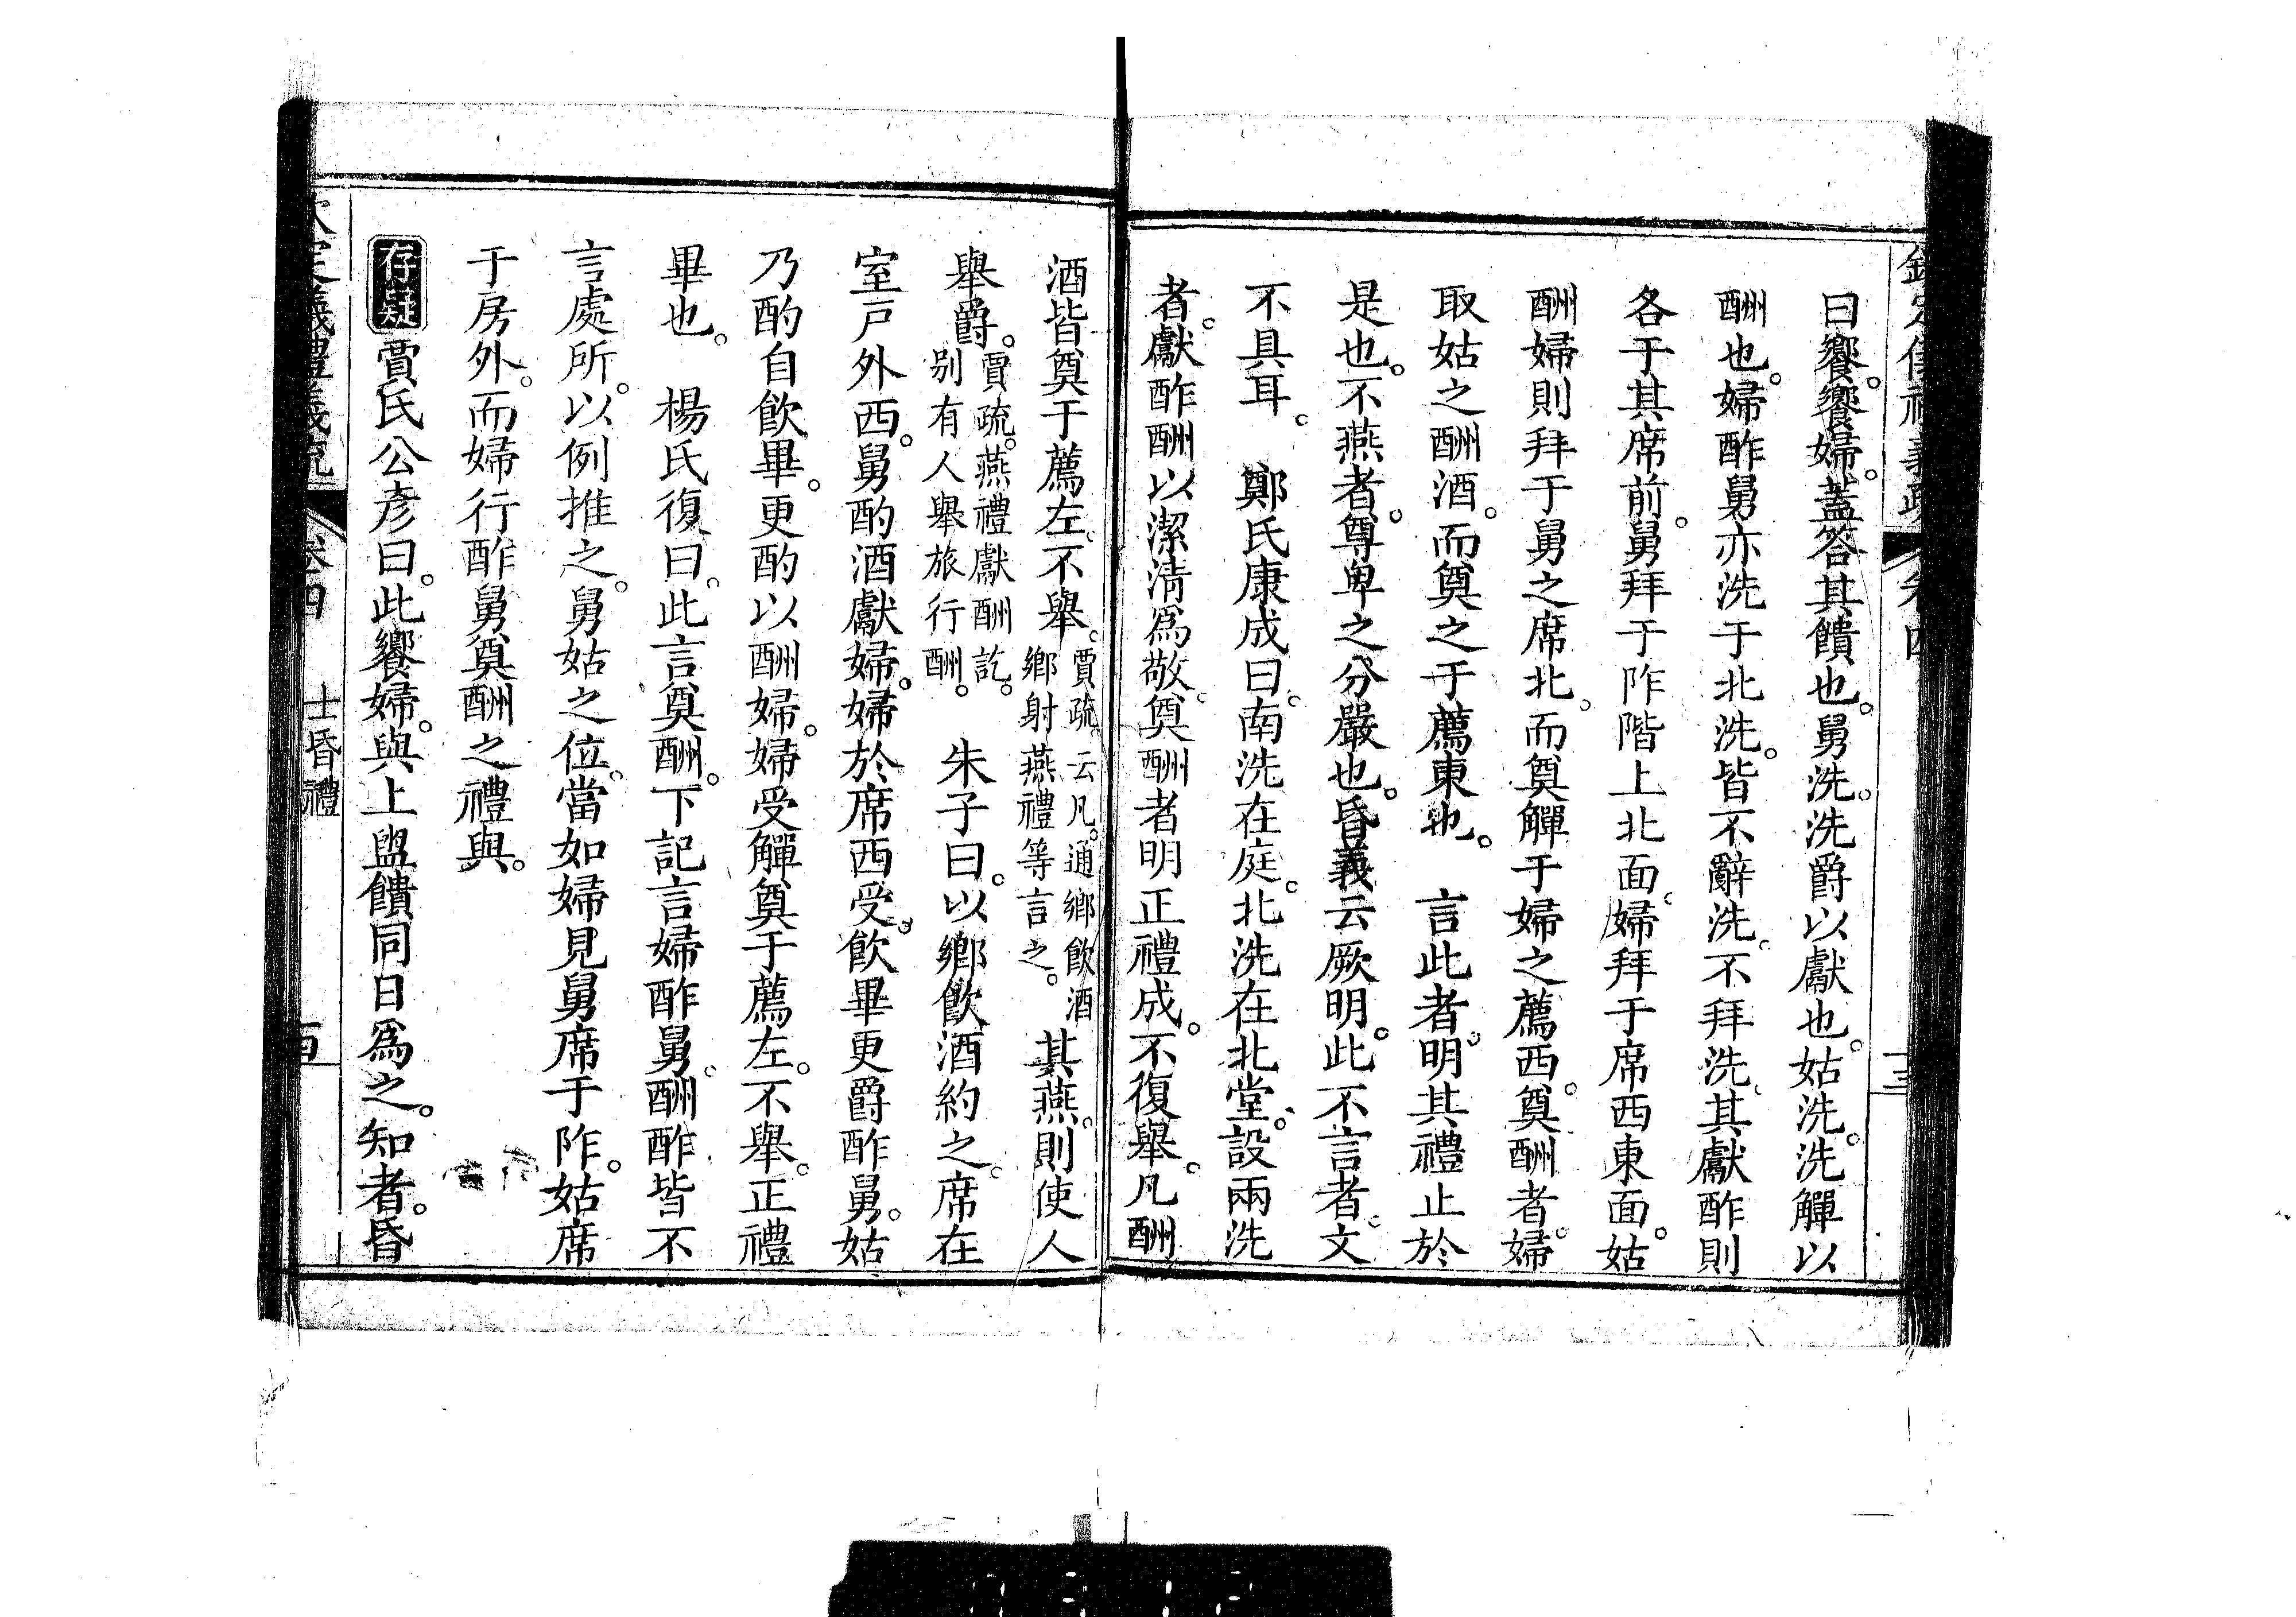 曰饗。饗婦。蓋答其饋也。舅洗。洗爵以獻也。姑洗。洗觶以
酬也。婦酢舅亦洗于北洗。皆不辭洗。不拜洗。其獻酢則
各于其席前。舅拜于阼階上北面。婦拜于席西東面。姑
酬婦則拜于舅之席北。而奠觶于婦之薦西。奠酬者。婦
取姑之酬酒。而奠之于薦東也。　言此者。明其禮止於
是也。不燕者。尊卑之分嚴也。昏義云厥明。此不言者。文
不具耳。　鄭氏康成曰。南洗在庭。北洗在北堂。設兩洗
者。獻酢酬以潔清爲敬。奠酬者明正禮成。不復舉。凡酬
酒皆奠于薦左。不舉。賈疏。云凡。通鄉飲酒鄉射燕禮等言之。其燕。則使人
舉爵。賈疏。燕禮獻酬訖。别有人舉旅行酬。　朱子曰。以鄉飲酒約之。席在
室戸外西。舅酌酒獻婦。婦於席西受。飲畢更爵酢舅。姑
乃酌自飲畢。更酌以酬婦。婦受觶奠于薦左。不舉。正禮
畢也。　楊氏復曰。此言奠酬。下記言婦酢舅。酬酢皆不
言處所。以例推之。舅姑之位。當如婦見舅席于阼。姑席
于房外。而婦行酢舅奠酬之禮與。
存疑 賈氏公彥曰。此饗婦。與上盥饋同日爲之。知者。昏
義禮義疏 卷四 士昏禮